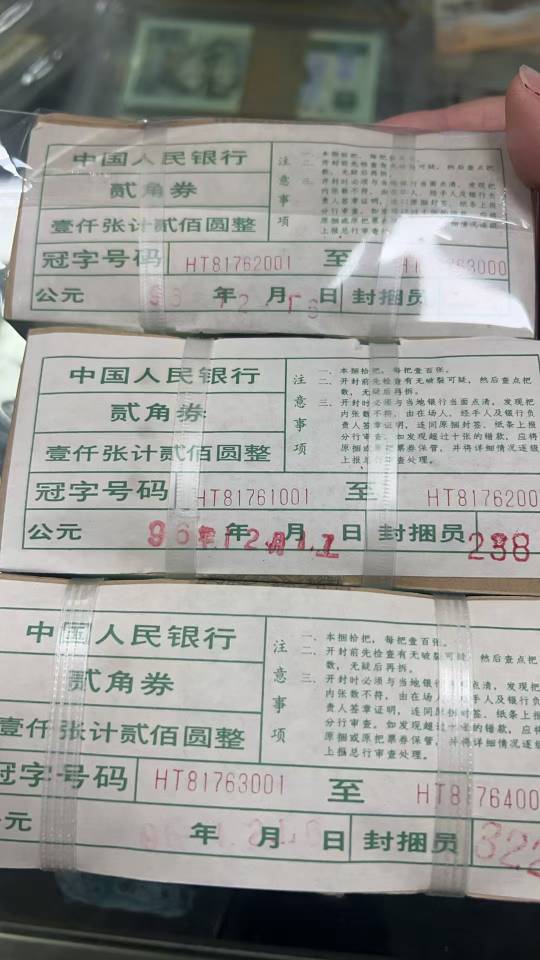 中国人民银行
贰角券
壹仟张计贰佰圆整
冠字号码 HT81762001 至 3000
公元 96 年 12 月 16 日 封捆员
注意事项
一、本捆拾把,每把
二、开封前先检查有无破裂可疑,然后查点把
数,无疑后再拆。
三、开封时必须与当地银行当面点清,发现把
内张数不符,
中国人民银行
贰角券
壹仟张计贰佰圆整
冠字号码 HT81761001 至 HT8176200
公元 96 年 12 月 日 封捆员 238
注意事项
一、本捆拾把,每把壹百张。
二、开封前先检查有无破裂可疑,然后查点把
数,无疑后再拆。
三、开封时必须与当地银行当面点清,发现把
内张数不符,由在场人、经手人及银行负
责人签章证明,连同原捆封签、纸条上报
分行审查。如发现超过十张的错款,应将
原捆或原把票券保管,并将详细情况逐级
上报总行审查处理。
中国人民银行
贰角券
壹仟张计贰佰圆整
冠字号码 HT81763001 至 HT8 76400
元 年 月 日 封捆员 322
注意事项
一、本捆拾把,每把壹百张。
二、开封前先检查有无破裂可疑,然后查点把
数,无疑后再拆。
三、开封时必须与当地银行 面点清,发现把
内张数不符,由在场人、 手人及银行负
责人签章证明,连同原 封签、纸条上报
分行审查。如发现超过十 的错款,应将
原捆或原把票券保管, 并将详细情况逐级
上报总行审查处理。